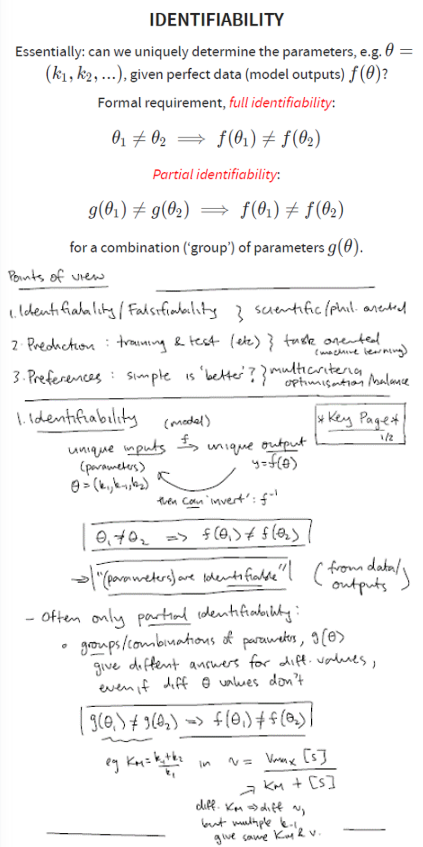 IDENTIFIABILITY
Essentially: can we uniquely determine the parameters, e.g. θ =
(k₁, k₂, …), given perfect data (model outputs) f(θ)?
Formal requirement, full identifiability:
θ₁ ≠ θ₂ ⟹ f(θ₁) ≠ f(θ₂)
Partial identifiability:
g(θ₁) ≠ g(θ₂) ⟹ f(θ₁) ≠ f(θ₂)
for a combination ('group') of parameters g(θ).
Points of view
1. Identifiability / Falsifiability } scientific/phil. oriented
2. Prediction : training & test (etc) } task oriented
(machine learning)
3. Preferences : simple is 'better'? } multicriteria
optimisation/balance
1. Identifiability (model)
* Key Page *
1/2
unique inputs f→ unique output
(parameters) y=f(θ)
θ = (k₁,k₋₁,k₂)
then can 'invert': f⁻¹
θ₁≠θ₂ => f(θ₁) ≠ f(θ₂)
→ "(parameters) are identifiable" (from data/
outputs)
- Often only partial identifiability:
• groups/combinations of parameters, g(θ)
give different answers for diff. values,
even if diff θ values don't
g(θ₁) ≠ g(θ₂) => f(θ₁) ≠ f(θ₂)
eg KM = k₋₁+k₂/k₁ in v = Vmax [S]
→ KM + [S]
diff. KM => diff v,
but multiple k₋₁
give same KM & v.